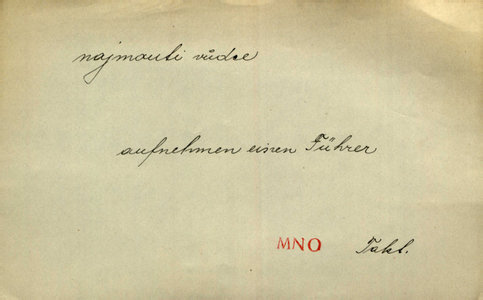 najmouti vůdce
aufnehmen einen Führer
MNO Takt.